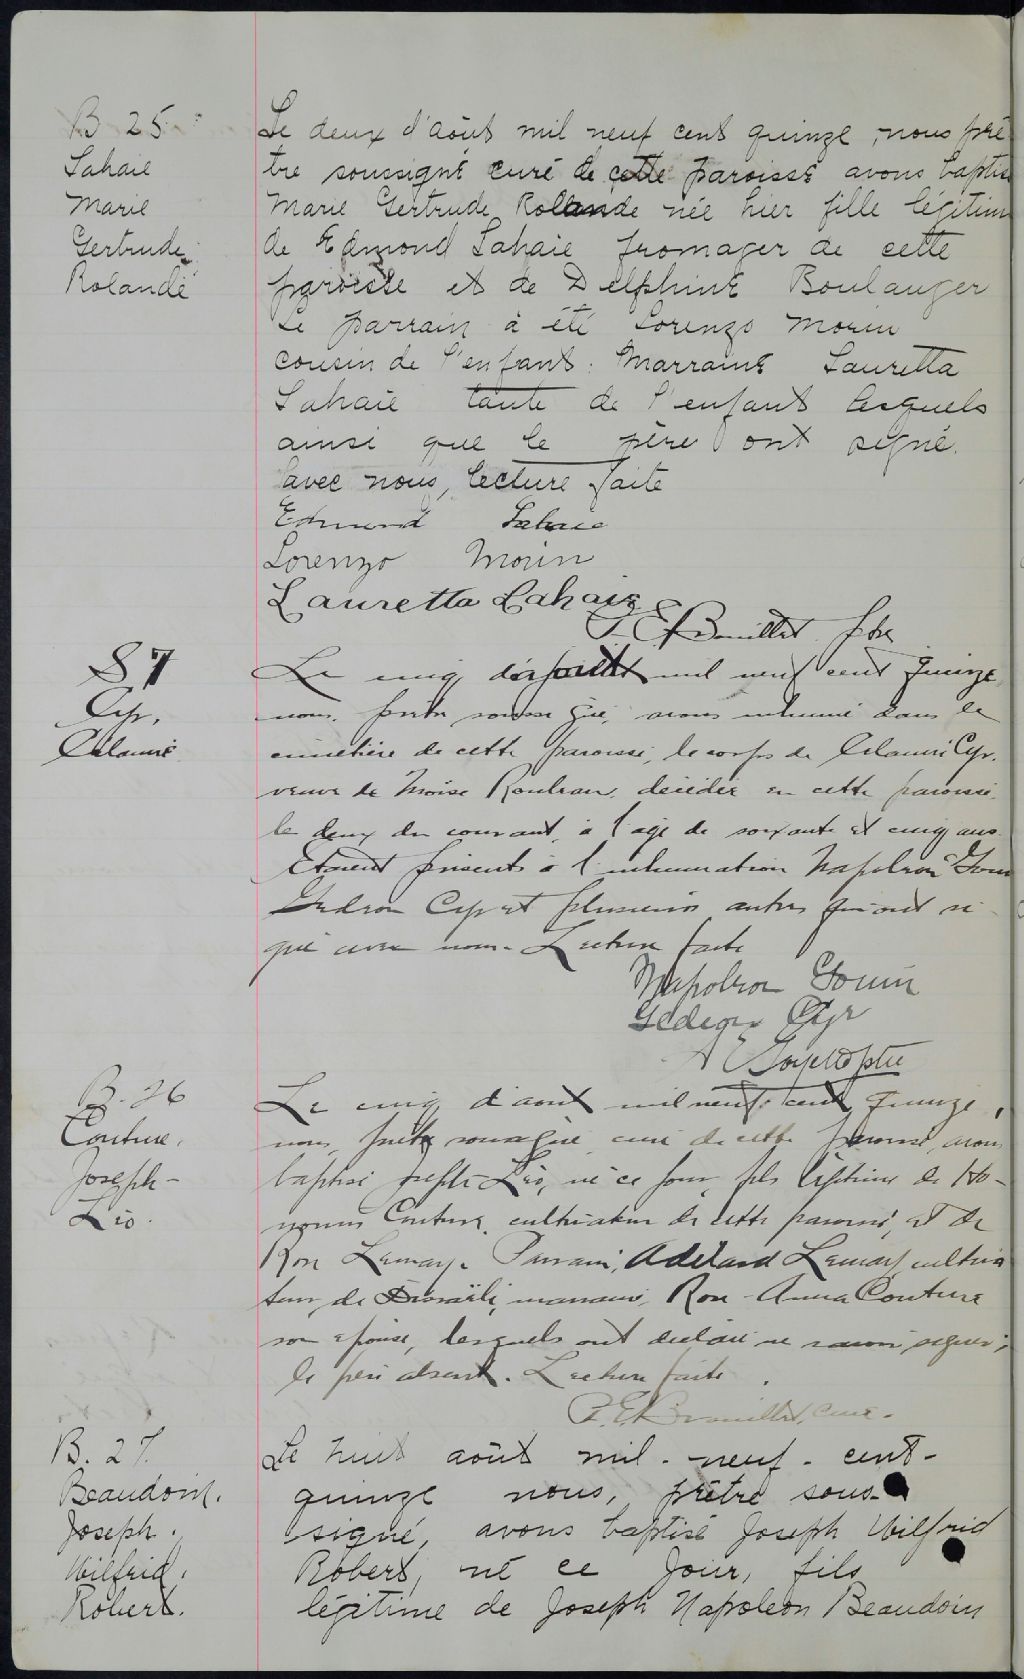 B 25
Lahaie
Marie
Gertrude
Rolande
Le deux d'août mil neuf cent quinze, nous prê
tre soussigné curé de cette paroisse avons baptisé
Marie Gertrude Rolande née hier fille légitime
de Edmond Lahaie fromager de cette
paroisse et de Delphine Boulanger
Le parrain à été Lorenzo Morin
cousin de l'enfant. Marraine Lauretta
Lahaie tante de l'enfant lesquels
ainsi que le père ont signé.
avec nous, lecture faite
Edmond Lahaie
Lorenzo Morin
Lauretta Lahaie
P. E. Brouillet Ptre
S 7
Cyr,
Célanire
Le cinq d'août mil neuf cent quinze
nous prêtre soussigné, avons inhumé dans le
cimetière de cette paroisse, le corps de Célanire Cyr.
veuve de Moïse Rouleau, décédée en cette paroisse
le deux du courant, à l'âge de soixante et cinq ans.
Etaient présents à l'inhumation Napoléon Gouin
Gédéon Cyr et plusieurs autres qui ont si
gné avec nous. Lecture faite
Napoléon Gouin
Gédéon Cyr
ptre
B. 26
Couture,
Joseph-
Léo.
Le cinq d'août mil neuf cent quinze,
nous, prêtre soussigné curé de cette paroisse, avons
baptisé Joseph Léo, né ce jour, fils légitime de Ho-
norius Couture, cultivateur de cette paroisse, et de
Rose Lemay. Parrain, Adélard Lemay cultiva
teur, de Disraëli, marraine, Rose-Anna Couture
son épouse, lesquels ont déclaré ne savoir signer;
le père absent. Lecture faite.
P. E. Brouillet, curé.
B. 27.
Beaudoin.
Joseph.
Wilfrid.
Robert.
Le huit août mil-neuf-cent-
quinze nous, prêtre sous-
signé, avons baptisé Joseph Wilfrid
Robert, né ce jour, fils
légitime de Joseph Napoléon Beaudoin